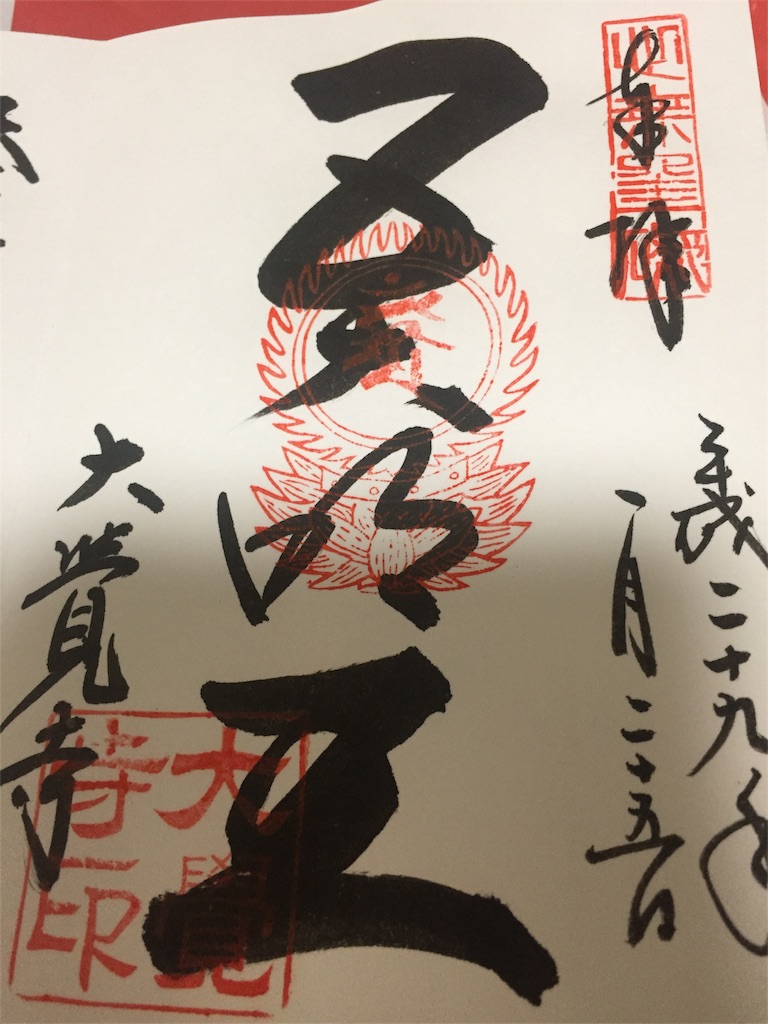 奉拝
平成二十九年
一月二十五日
五大明王
大覺寺
大覺
寺印